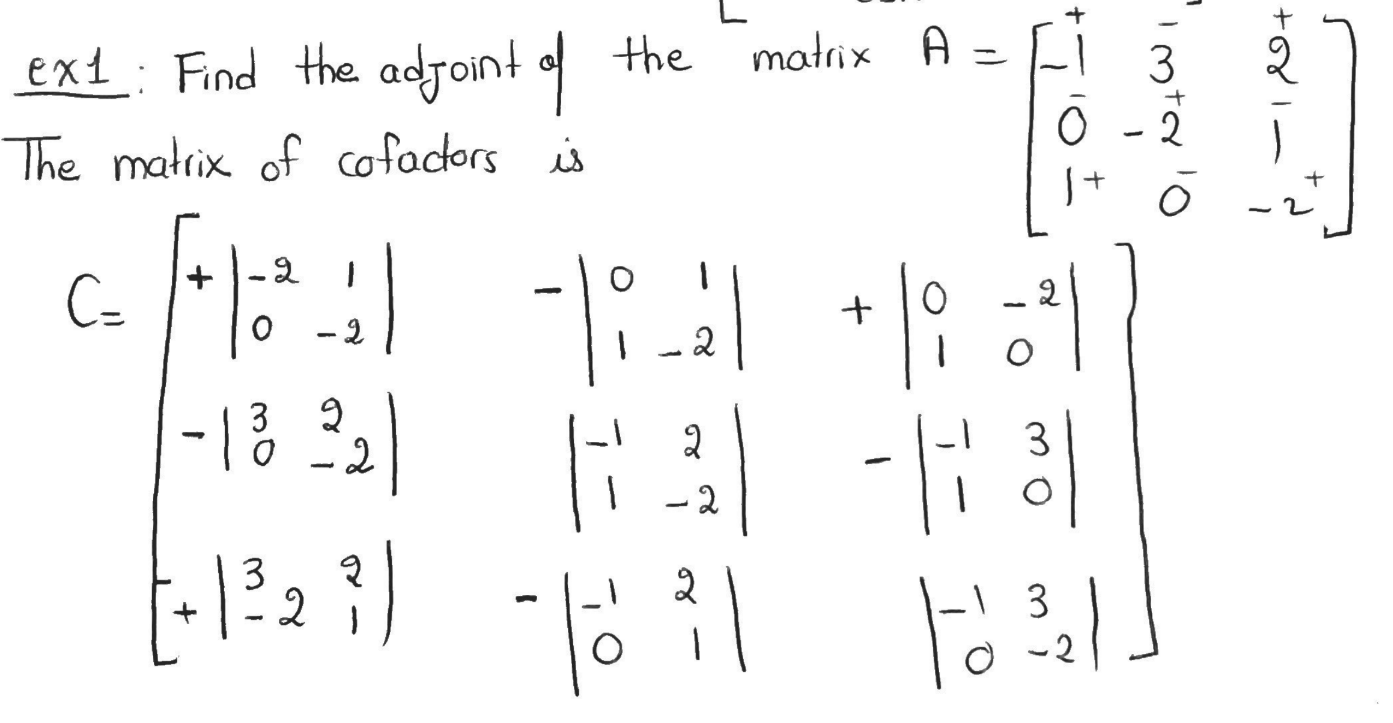 ex1 : Find the adjoint of the matrix A = [-1 3 2
0 -2 1
1 0 -2]
+ - +
- + -
+ - +
The matrix of cofactors is
C= [+ |-2 1| - |0 1| + |0 -2|
|0 -2| |1 -2| |1 0|
- |3 2| |-1 2| - |-1 3|
|0 -2| |1 -2| |1 0|
+ |3 2| - |-1 2| |-1 3|
|-2 1| |0 1| |0 -2|]